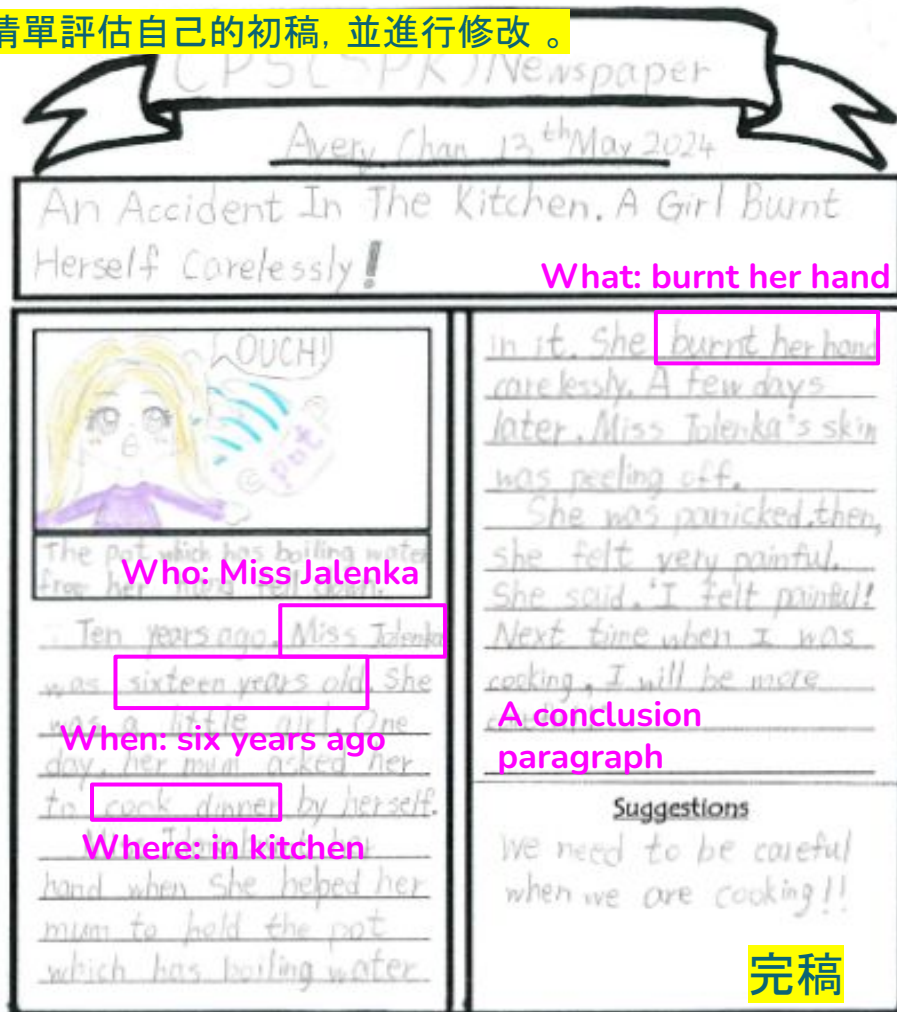 清單評估自己的初稿, 並進行修改 。
CPS(SPK)Newspaper
Avery Chan 13th May 2024
An Accident In The Kitchen. A Girl Burnt
Herself Carelessly!
What: burnt her hand
OUCH!
pot
The pot which has boiling water
her fell down.
Who: Miss Jalenka
Ten years ago, Miss Jolenka
was sixteen years old. She
was a little girl. One
When: six years ago
day, her mum asked her
to cook dinner by herself.
Where: in kitchen
hand when she helped her
mum to hold the pot
which has boiling water
in it. She burnt her hand
carelessly. A few days
later, Miss Jolenka's skin
was peeling off.
She was panicked, then,
she felt very painful.
She said, 'I felt painful!
Next time when I was
cooking, I will be more
A conclusion
paragraph
Suggestions
We need to be careful
when we are cooking!!
完稿